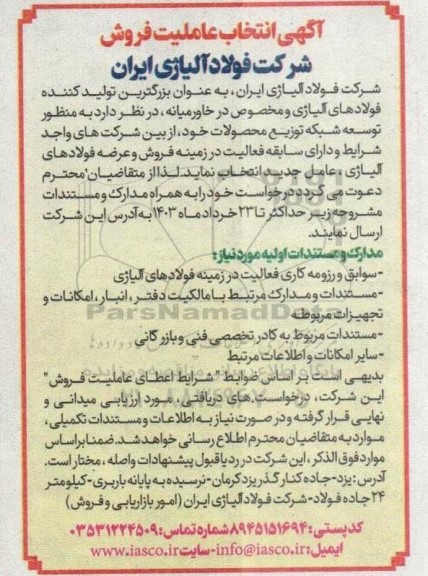 آگهی انتخاب عاملیت فروش
شرکت فولاد آلیاژی ایران
شرکت فولاد آلیاژی ایران، به عنوان بزرگترین تولید کننده
فولادهای آلیاژی و مخصوص در خاورمیانه، در نظر دارد به منظور
توسعه شبکه توزیع محصولات خود، از بین شرکت های واجد
شرایط و دارای سابقه فعالیت در زمینه فروش و عرضه فولادهای
آلیاژی، عامل جدید انتخاب نماید. لذا از متقاضیان محترم
دعوت می گردد درخواست خود را به همراه مدارک و مستندات
مشروحه زیر حداکثر تا ۲۳ خرداد ماه ۱۴۰۳ به آدرس این شرکت
ارسال نمایند.
مدارک و مستندات اولیه مورد نیاز:
-سوابق و رزومه کاری فعالیت در زمینه فولادهای آلیاژی
-مستندات و مدارک مرتبط با مالکیت دفتر، انبار، امکانات و
تجهیزات مربوطه
-مستندات مربوط به کادر تخصصی فنی و بازرگانی
-سایر امکانات و اطلاعات مرتبط
بدیهی است بر اساس ضوابط "شرایط اعطای عاملیت فروش"
این شرکت، درخواست های دریافتی، مورد ارزیابی میدانی و
نهایی قرار گرفته و در صورت نیاز به اطلاعات و مستندات تکمیلی،
موارد به متقاضیان محترم اطلاع رسانی خواهد شد. ضمنا بر اساس
موارد فوق الذکر، این شرکت در رد یا قبول پیشنهادات واصله، مختار است.
آدرس: یزد-جاده کنار گذر یزد کرمان-نرسیده به پایانه باربری-کیلومتر
۲۴ جاده فولاد-شرکت فولاد آلیاژی ایران (امور بازاریابی و فروش)
کد پستی: ۸۹۴۵۱۵۱۶۹۴ شماره تماس: ۰۳۵۳۱۲۲۴۵۰۹
ایمیل: info@iasco.ir-سایت www.iasco.ir
ParsNamadData